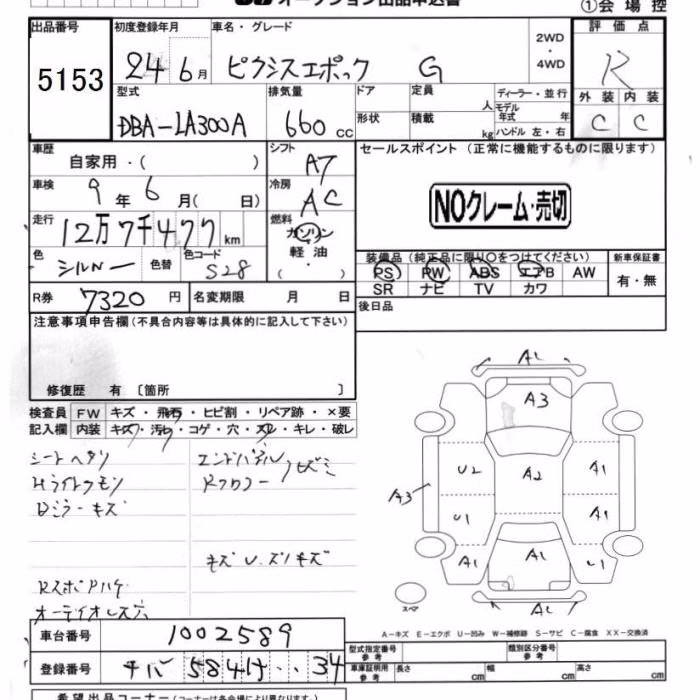 オークション出品申込書
①会場控
出品番号 初度登録年月 車名・グレード 評価点
5153 24 6月 ピクシスエポック G 2WD・4WD R
型式 排気量 ドア 定員 人 ディーラー・並行 外装 内装
DBA-LA300A 660cc 形状 積載 kg モデル年式 年 ハンドル 左・右 C C
車歴 自家用・( ) シフト AT セールスポイント(正常に機能するものに限ります)
車検 9年6月( 日) 冷房 AC NOクレーム・売切
走行 12万7千477km 燃料 ガソリン
軽油・( )
色 シルバー 色替 色コード S28
装備品(純正品に限り○をつけてください) 新車保証書
PS PW ABS エアB AW 有・無
SR ナビ TV カワ
R券 7320円 名変期限 月 日 後日品
注意事項申告欄(不具合内容等は具体的に記入して下さい)
修復歴 有〔箇所 〕
検査員 FW キズ・飛石・ヒビ割・リペア跡・×要
記入欄 内装 キズ・汚レ・コゲ・穴・スレ・キレ・破レ
シートヘタリ エンドパネル
Hライトクモリ Rフロアー
Dミラーキズ
キズU.スリキズ
オーディオレス穴
A1
A3
U2 A2 A1
A3
U1 A1
A1 A1 U1
A1
スペア
A-キズ E-エクボ U-凹み W-補修跡 S-サビ C-腐食 XX-交換済
車台番号 1002589 型式指定番号 参考 類別区分番号 参考
登録番号 チバ 584 け ‥34 車庫証明用 参考 長さ cm 幅 cm 高さ cm
希望出品コーナー(コーナーは各会場により異なります。)